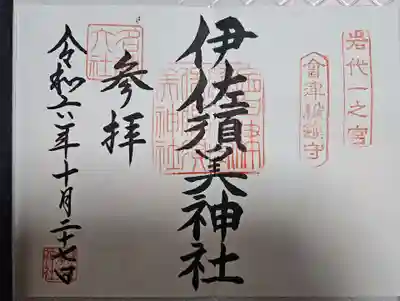 岩代一之宮
會津總鎮守
伊佐須美神社
参拝
令和六年十月二十七日